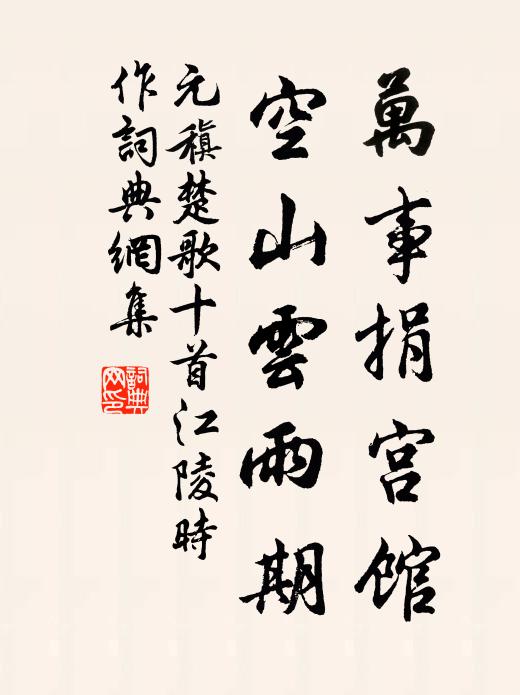 萬事捐宫館
空山雲雨期
元稹楚歌十首江陵時
作詞典網集
詞典
网印